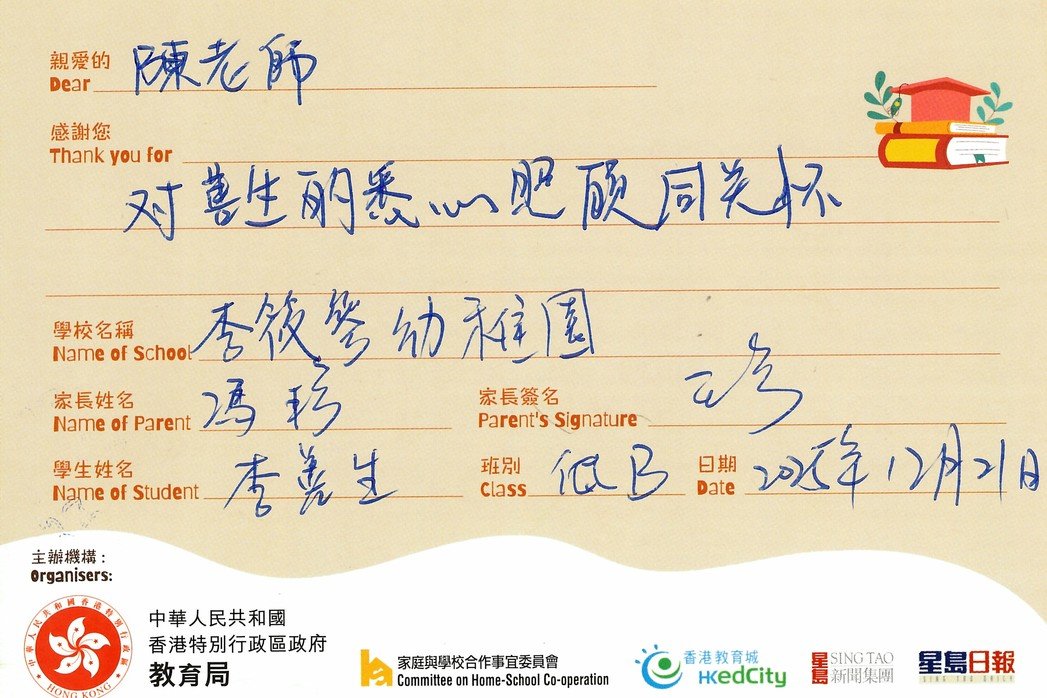 親愛的
Dear 陳老師
感謝您
Thank you for
对善生的悉心照顧同关怀
學校名稱
Name of School 李筱笒幼稚園
家長姓名
Name of Parent 馮珍
家長簽名
Parent's Signature
學生姓名
Name of Student 李善生
班別
Class 低B
日期
Date 2025年12月21日
主辦機構:
Organisers:
中華人民共和國香港特別行政區
HONG KONG
中華人民共和國
香港特別行政區政府
教育局
家庭與學校合作事宜委員會
Committee on Home-School Co-operation
香港教育城
HKedCity
星島 SING TAO
新聞集團
星島日報
SING TAO DAILY